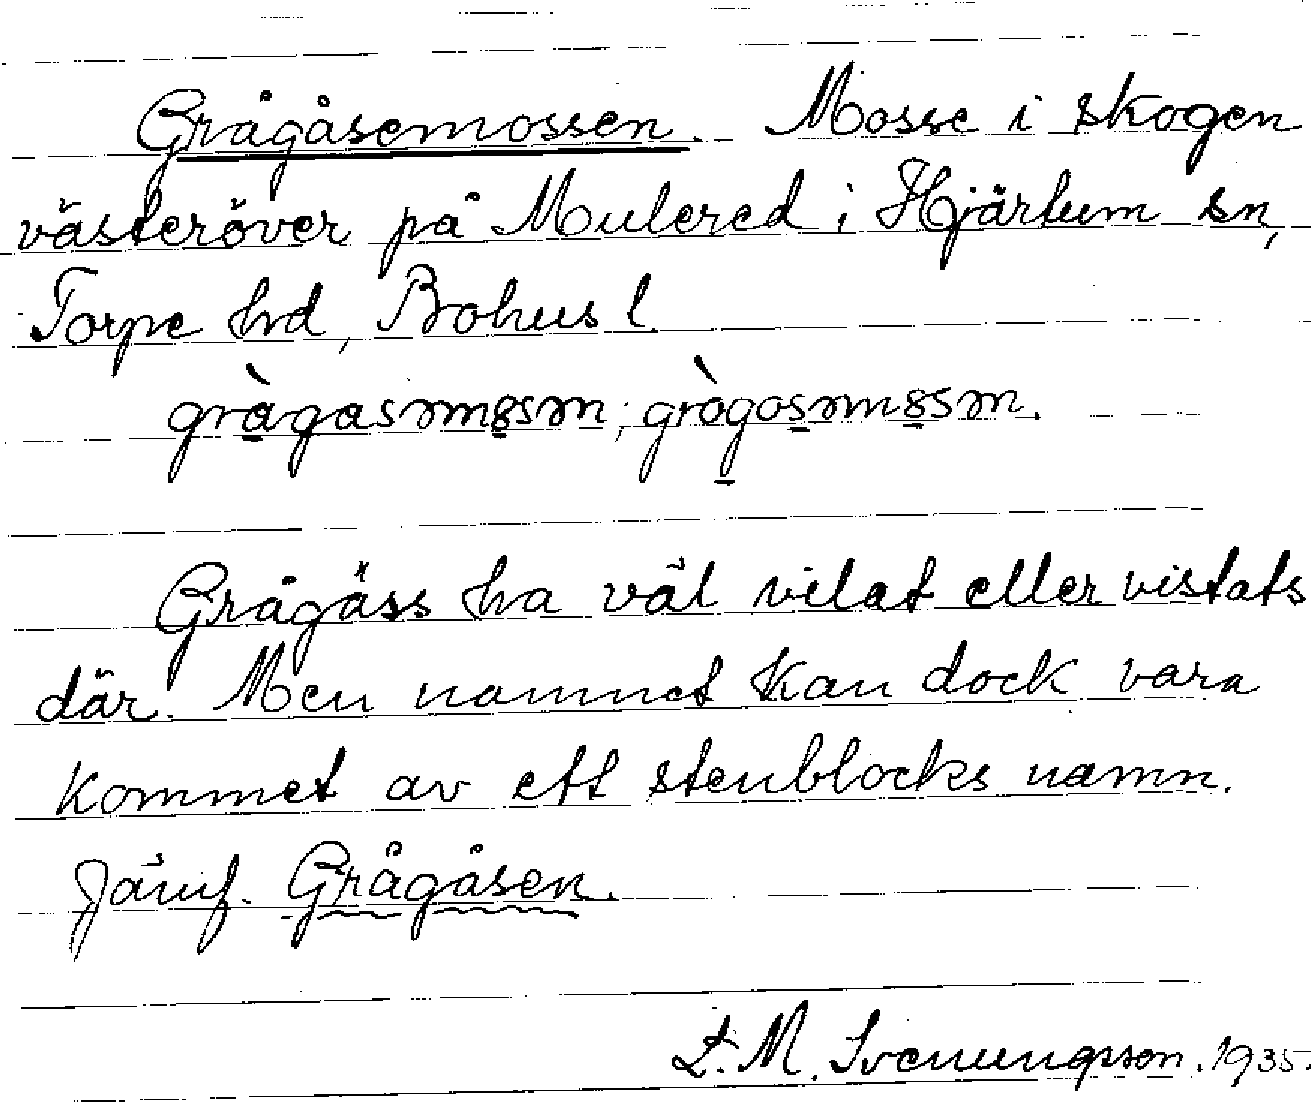 Grågåsemossen. Mosse i skogen
västeröver på Mulered i Hjärtum sn,
Torpe hd, Bohus l.
gràgasəmɷsəm; grògosəmɷsəm.
Grågäss ha väl vilat eller vistats
där. Men namnet kan dock vara
kommet av ett stenblocks namn.
Jämf. Grågåsen.
L. M. Svenungsson. 1935.